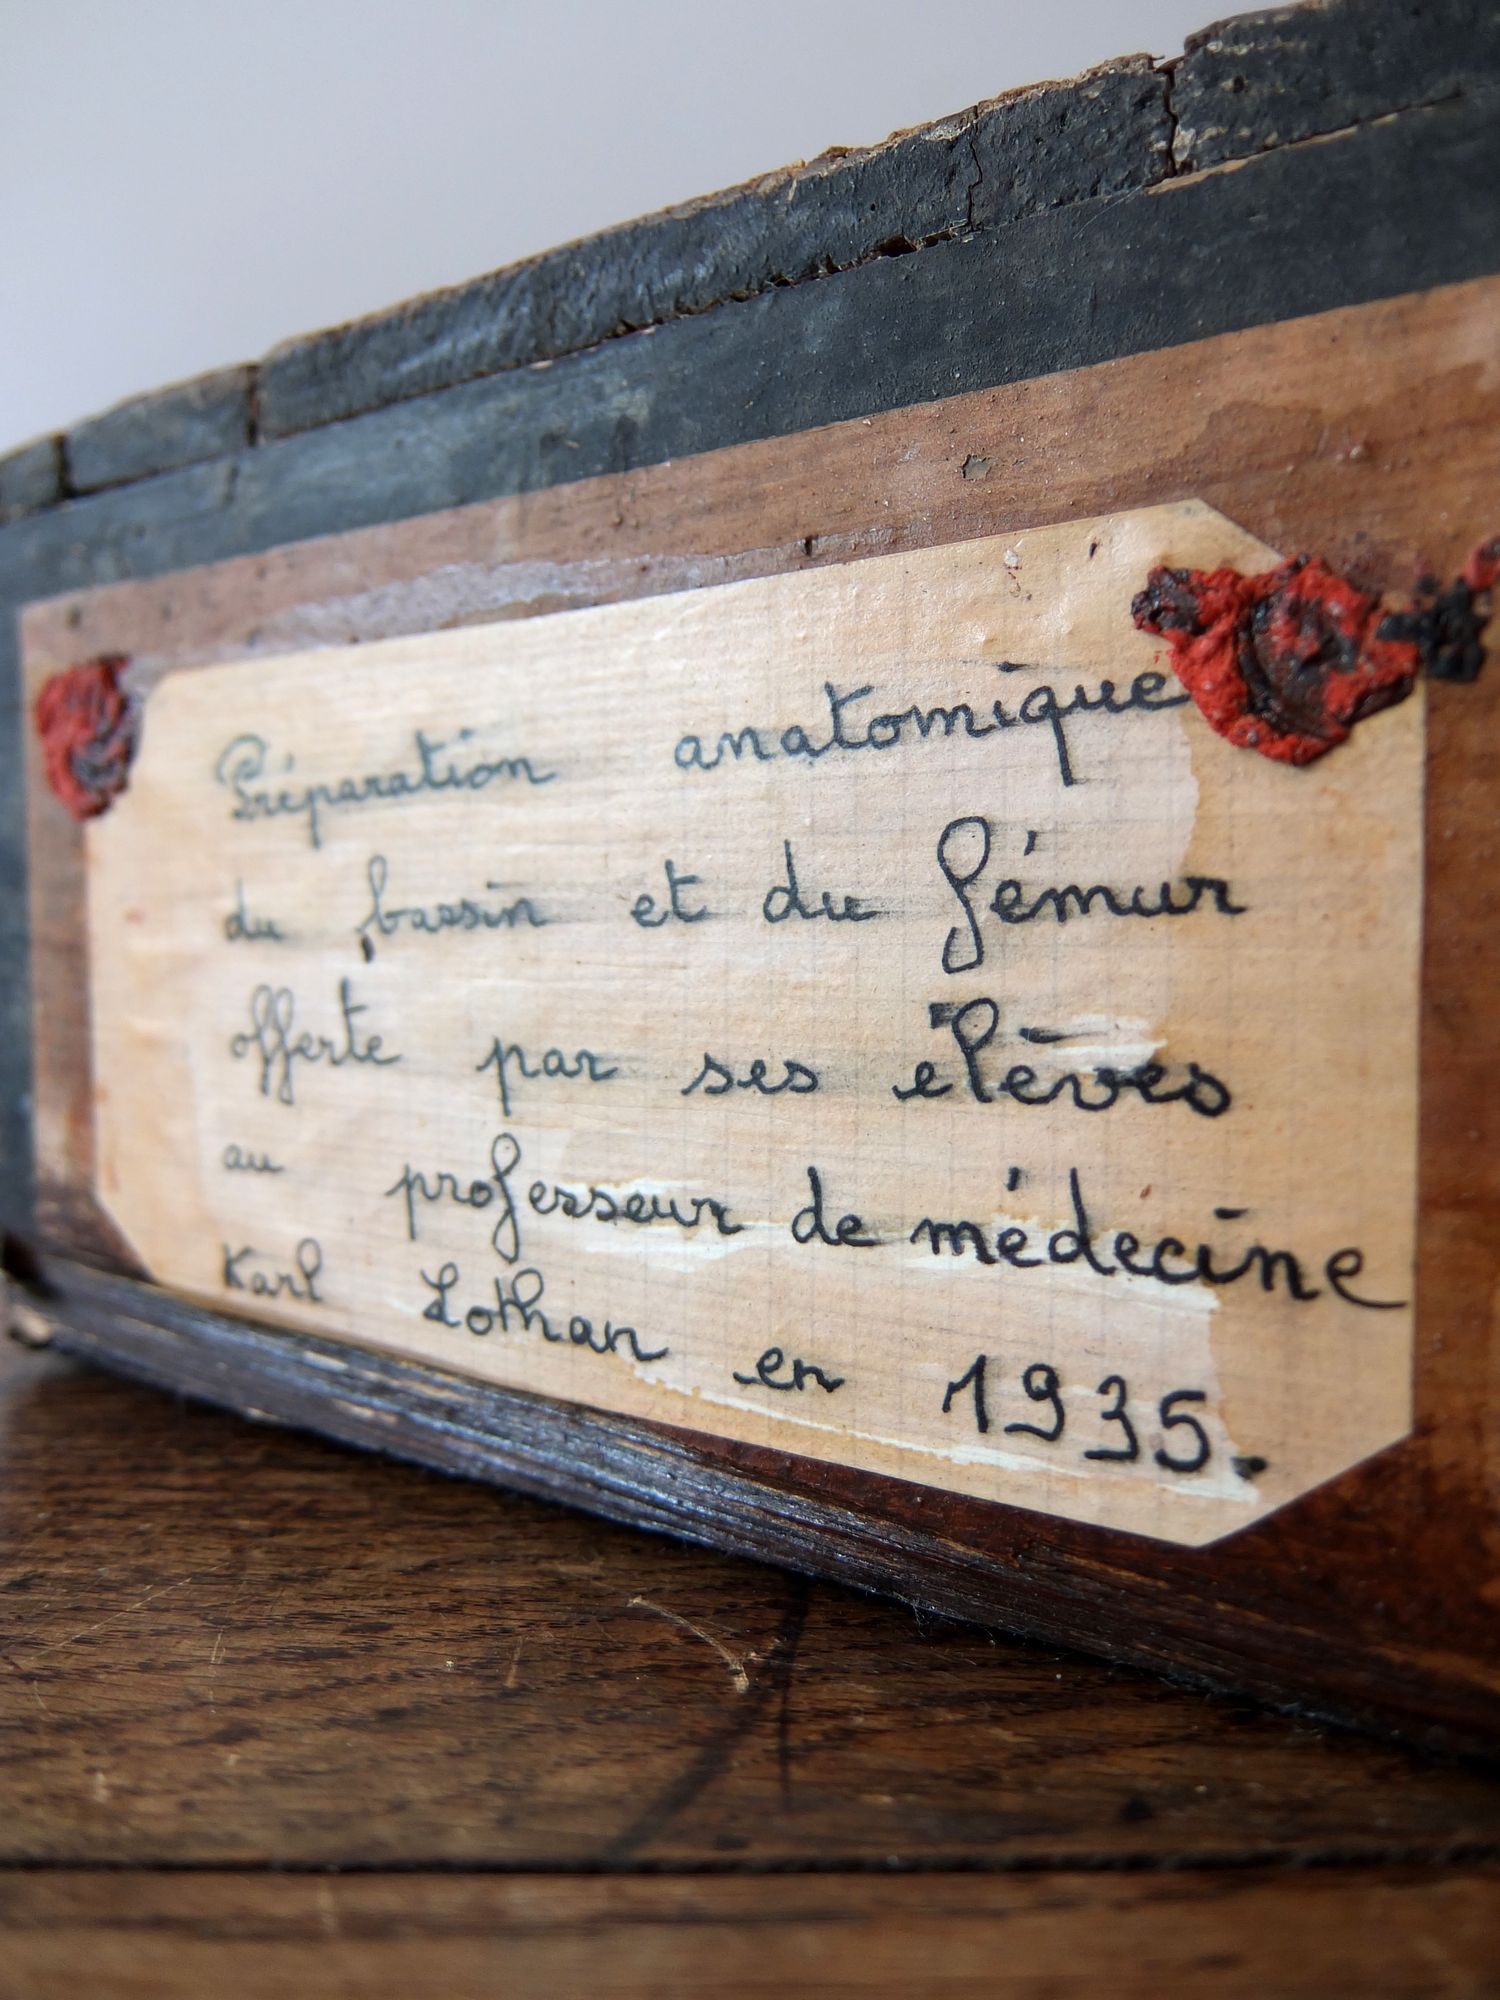 Préparation anatomique
du bassin et du fémur
offerte par ses elèves
au professeur de médecine
Karl Lothan en 1935.